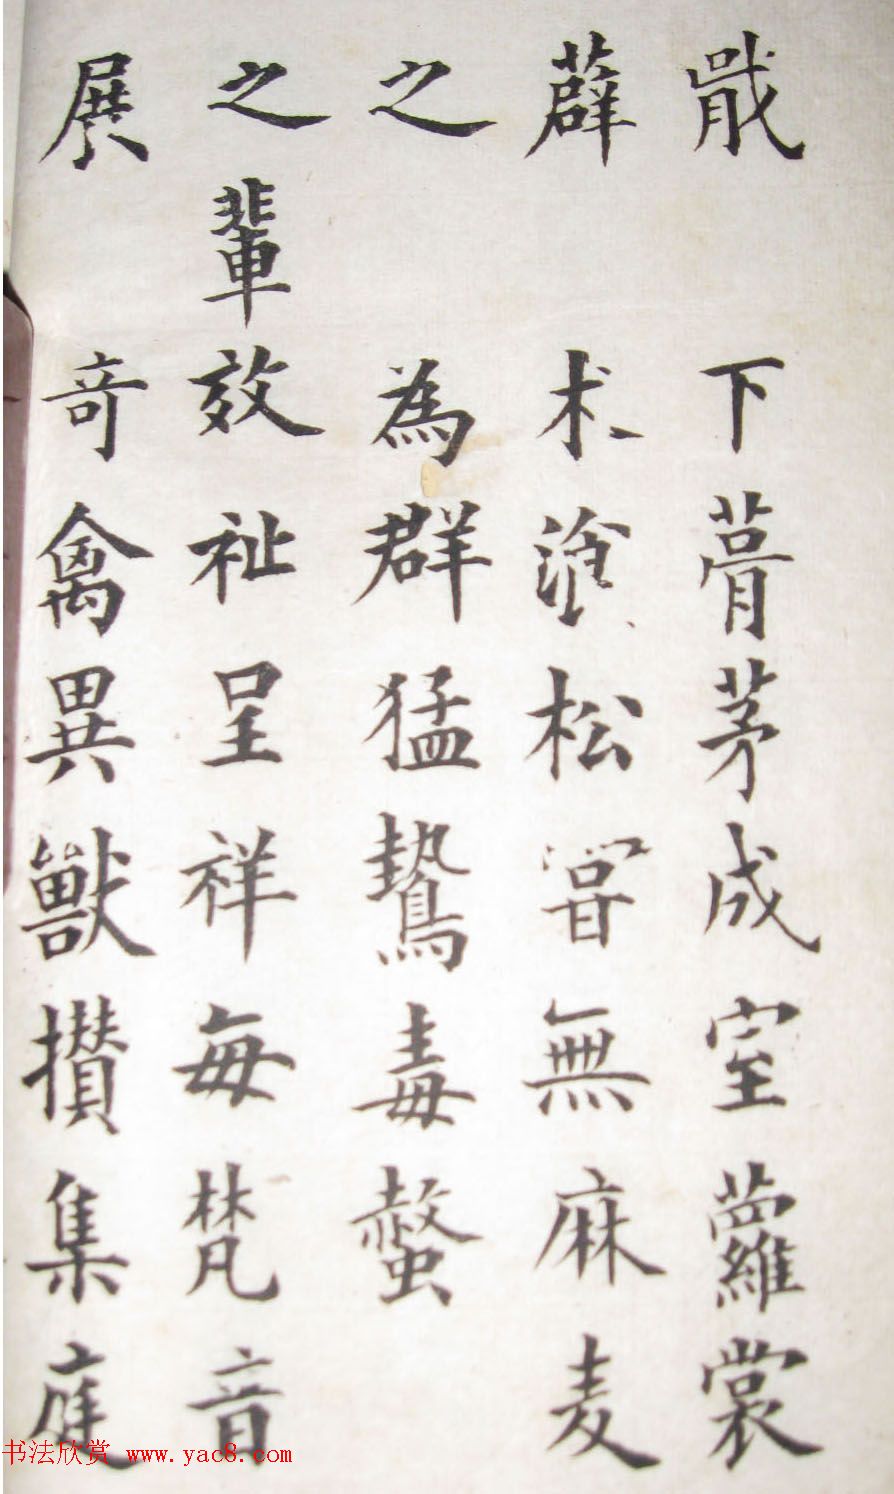 下茅成室蘿裳
薜术湌松無麻麦
之為群猛鷙毒螫
之輩效祉呈祥每梵音
展奇禽異獸攢集庭
书法欣赏 www.yac8.com